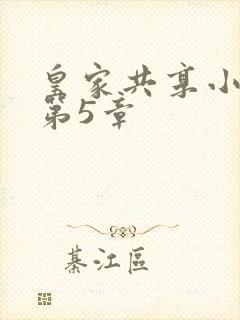 皇家共享小
第5章
綦江區